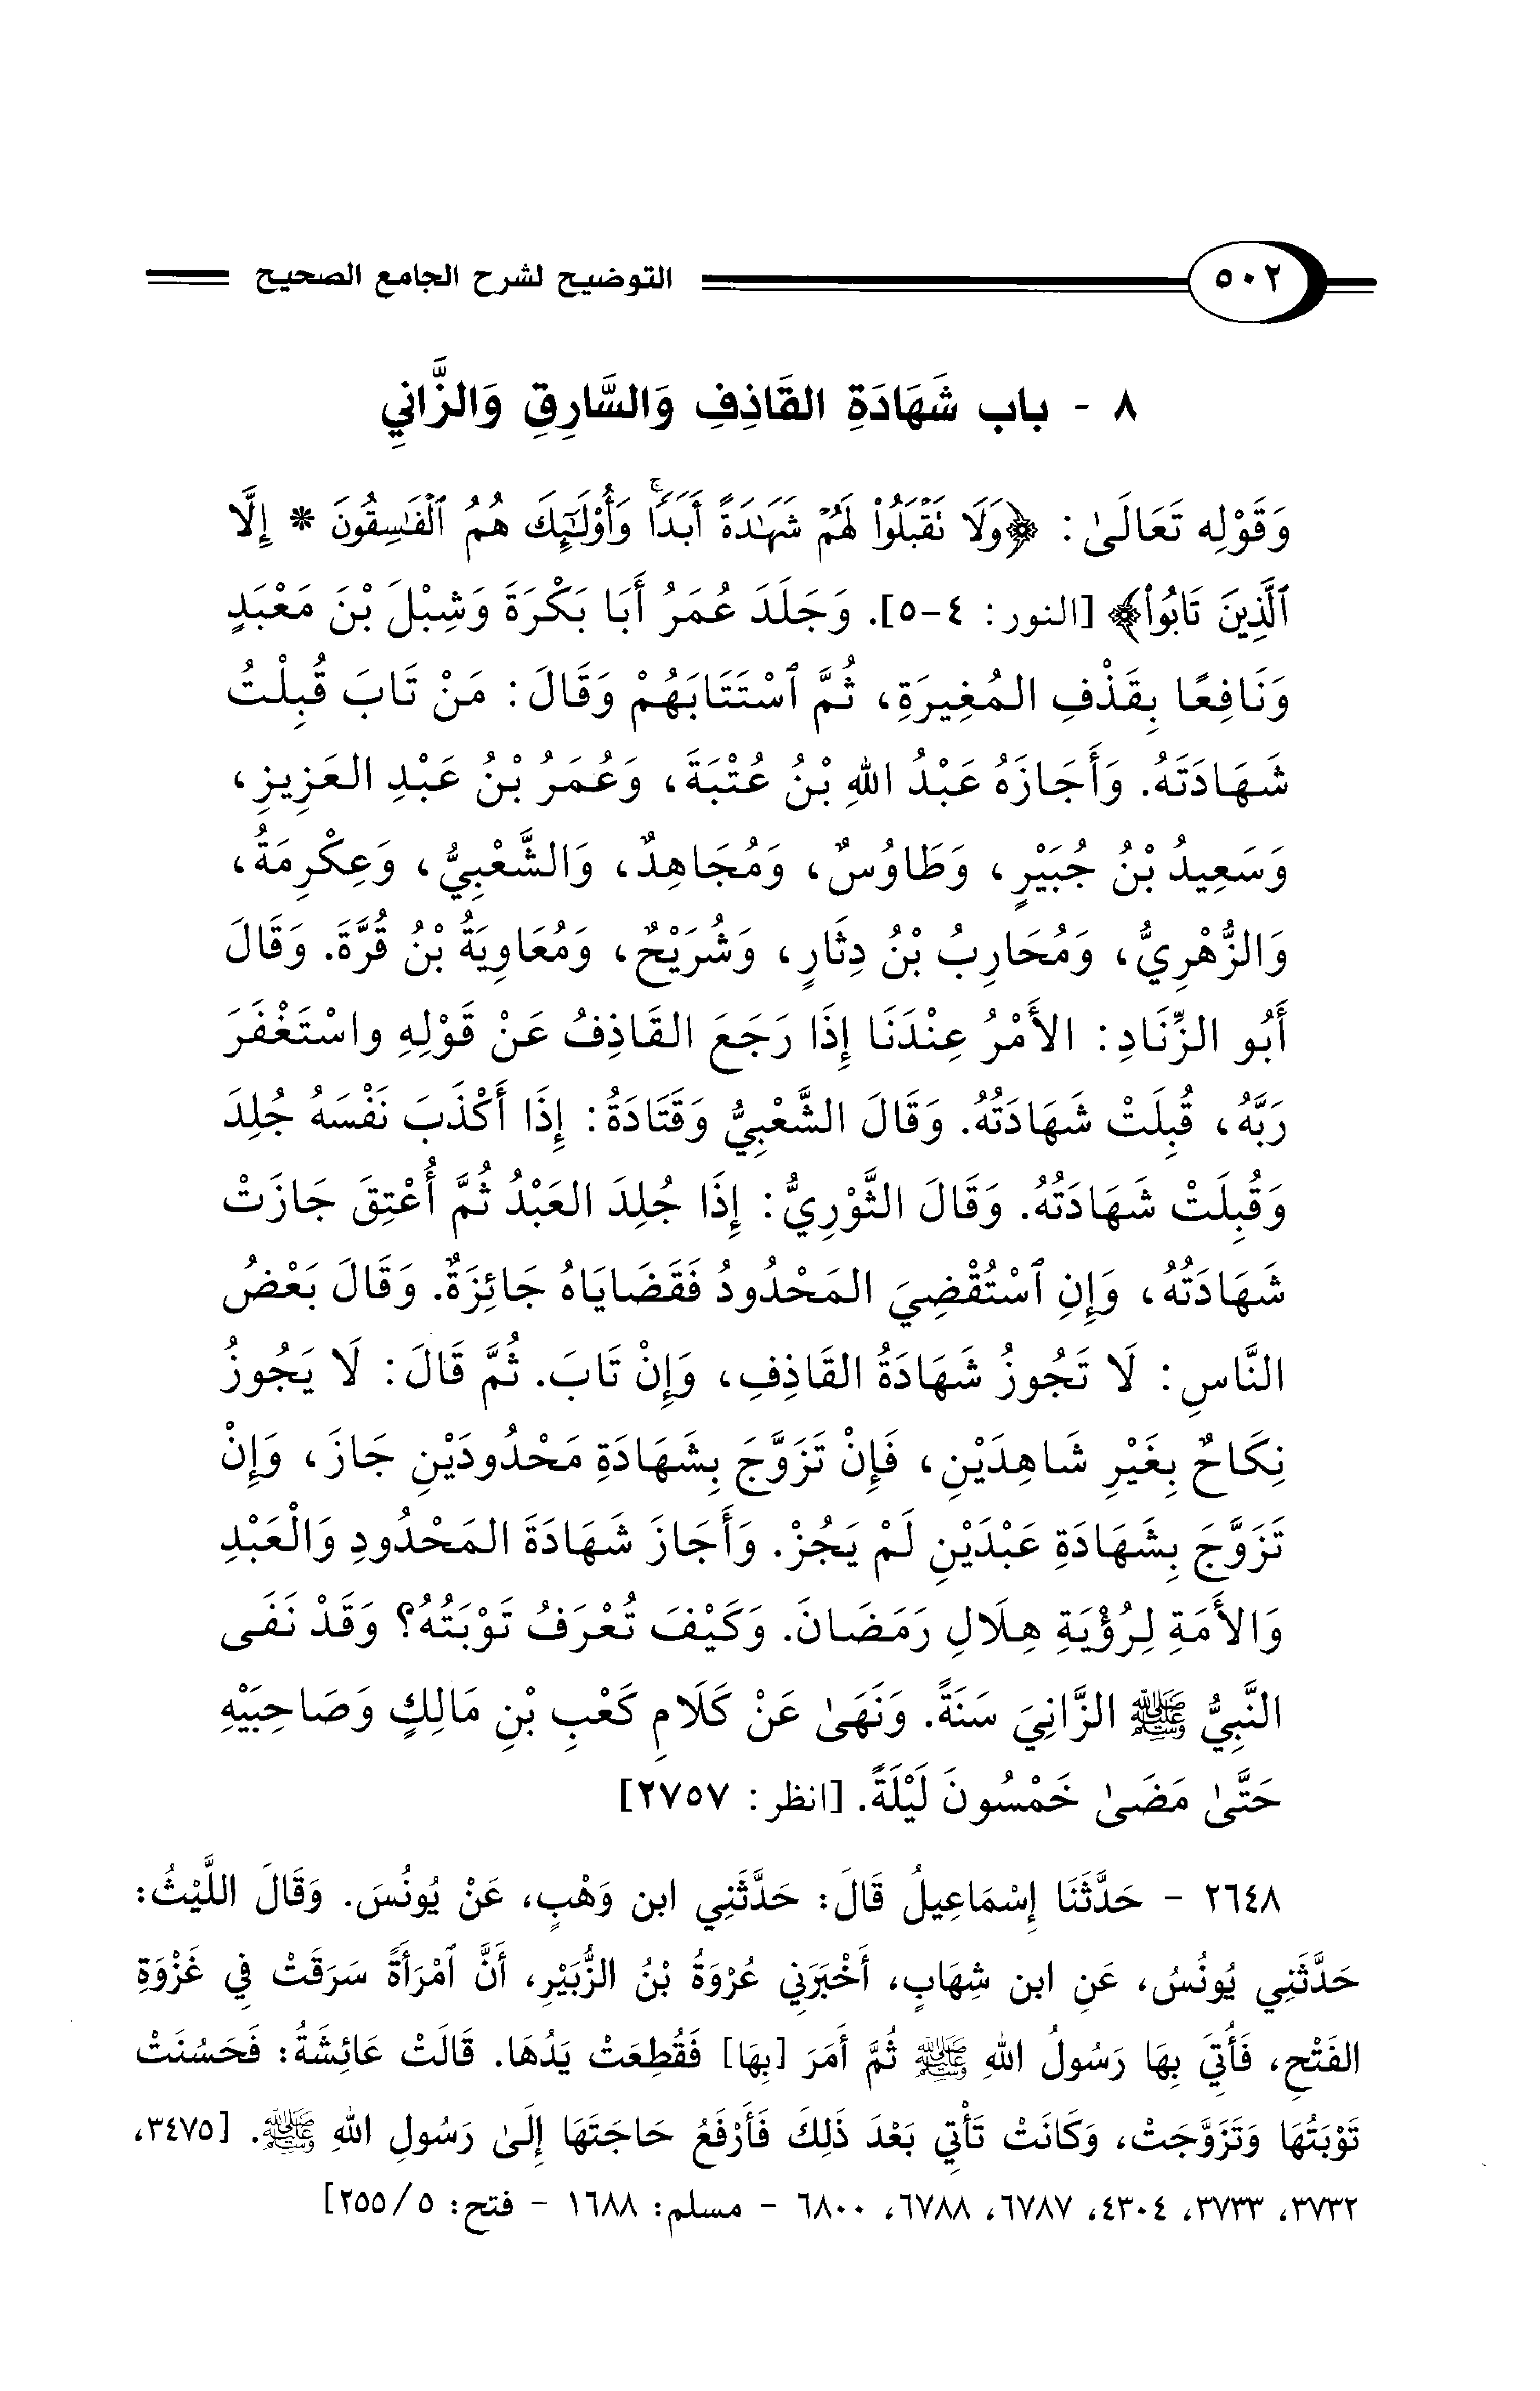 ٥٠٢ التوضيح لشرح الجامع الصحيح
٨ - باب شَهَادَةِ القَاذِفِ وَالسَّارِقِ وَالزَّانِي
وَقَوْلِه تَعَالَىٰ: ﴿وَلَا نَقْبَلُواْ لَهُمْ شَهَٰدَةً أَبَدًاۚ وَأُوْلَٰٓئِكَ هُمُ ٱلْفَٰسِقُونَ * إِلَّا
ٱلَّذِينَ تَابُواْ﴾ [النور: ٤-٥]. وَجَلَدَ عُمَرُ أَبَا بَكْرَةَ وَشِبْلَ بْنَ مَعْبَدٍ
وَنَافِعًا بِقَذْفِ المُغِيرَةِ، ثُمَّ ٱسْتَتَابَهُمْ وَقَالَ: مَنْ تَابَ قُبِلْتُ
شَهَادَتَهُ. وَأَجَازَهُ عَبْدُ اللهِ بْنُ عُتْبَةَ، وَعُمَرُ بْنُ عَبْدِ العَزِيزِ،
وَسَعِيدُ بْنُ جُبَيْرٍ، وَطَاوُسٌ، وَمُجَاهِدٌ، وَالشَّعْبِيُّ، وَعِكْرِمَةُ،
وَالزُّهْرِيُّ، وَمُحَارِبُ بْنُ دِثَارٍ، وَشُرَيْحٌ، وَمُعَاوِيَةُ بْنُ قُرَّةَ. وَقَالَ
أَبُو الزِّنَادِ: الأَمْرُ عِنْدَنَا إِذَا رَجَعَ القَاذِفُ عَنْ قَوْلِهِ واسْتَغْفَرَ
رَبَّهُ، قُبِلَتْ شَهَادَتُهُ. وَقَالَ الشَّعْبِيُّ وَقَتَادَةُ: إِذَا أَكْذَبَ نَفْسَهُ جُلِدَ
وَقُبِلَتْ شَهَادَتُهُ. وَقَالَ الثَّوْرِيُّ: إِذَا جُلِدَ العَبْدُ ثُمَّ أُعْتِقَ جَازَتْ
شَهَادَتُهُ، وَإِنِ ٱسْتُقْضِيَ المَحْدُودُ فَقَضَايَاهُ جَائِزَةٌ. وَقَالَ بَعْضُ
النَّاسِ: لَا تَجُوزُ شَهَادَةُ القَاذِفِ، وَإِنْ تَابَ. ثُمَّ قَالَ: لَا يَجُوزُ
نِكَاحٌ بِغَيْرِ شَاهِدَيْنِ، فَإِنْ تَزَوَّجَ بِشَهَادَةِ مَحْدُودَيْنِ جَازَ، وَإِنْ
تَزَوَّجَ بِشَهَادَةِ عَبْدَيْنِ لَمْ يَجُزْ. وَأَجَازَ شَهَادَةَ المَحْدُودِ وَالْعَبْدِ
وَالأَمَةِ لِرُؤْيَةِ هِلَالِ رَمَضَانَ. وَكَيْفَ تُعْرَفُ تَوْبَتُهُ؟ وَقَدْ نَفَى
النَّبِيُّ ﷺ الزَّانِيَ سَنَةً. وَنَهَىٰ عَنْ كَلَامِ كَعْبِ بْنِ مَالِكٍ وَصَاحِبَيْهِ
حَتَّىٰ مَضَىٰ خَمْسُونَ لَيْلَةً. [انظر: ٢٧٥٧]
٢٦٤٨ - حَدَّثَنَا إِسْمَاعِيلُ قَالَ: حَدَّثَنِي ابن وَهْبٍ، عَنْ يُونُسَ. وَقَالَ اللَّيْثُ:
حَدَّثَنِي يُونُسُ، عَنِ ابن شِهَابٍ، أَخْبَرَنِي عُرْوَةُ بْنُ الزُّبَيْرِ، أَنَّ ٱمْرَأَةً سَرَقَتْ فِي غَزْوَةِ
الفَتْحِ، فَأُتِيَ بِهَا رَسُولُ اللهِ ﷺ ثُمَّ أَمَرَ [بِهَا] فَقُطِعَتْ يَدُهَا. قَالَتْ عَائِشَةُ: فَحَسُنَتْ
تَوْبَتُهَا وَتَزَوَّجَتْ، وَكَانَتْ تَأْتِي بَعْدَ ذَلِكَ فَأَرْفَعُ حَاجَتَهَا إِلَىٰ رَسُولِ اللهِ ﷺ. [٣٤٧٥،
٣٧٣٢، ٣٧٣٣، ٤٣٠٤، ٦٧٨٧، ٦٧٨٨، ٦٨٠٠ - مسلم: ١٦٨٨ - فتح: ٥/ ٢٥٥]